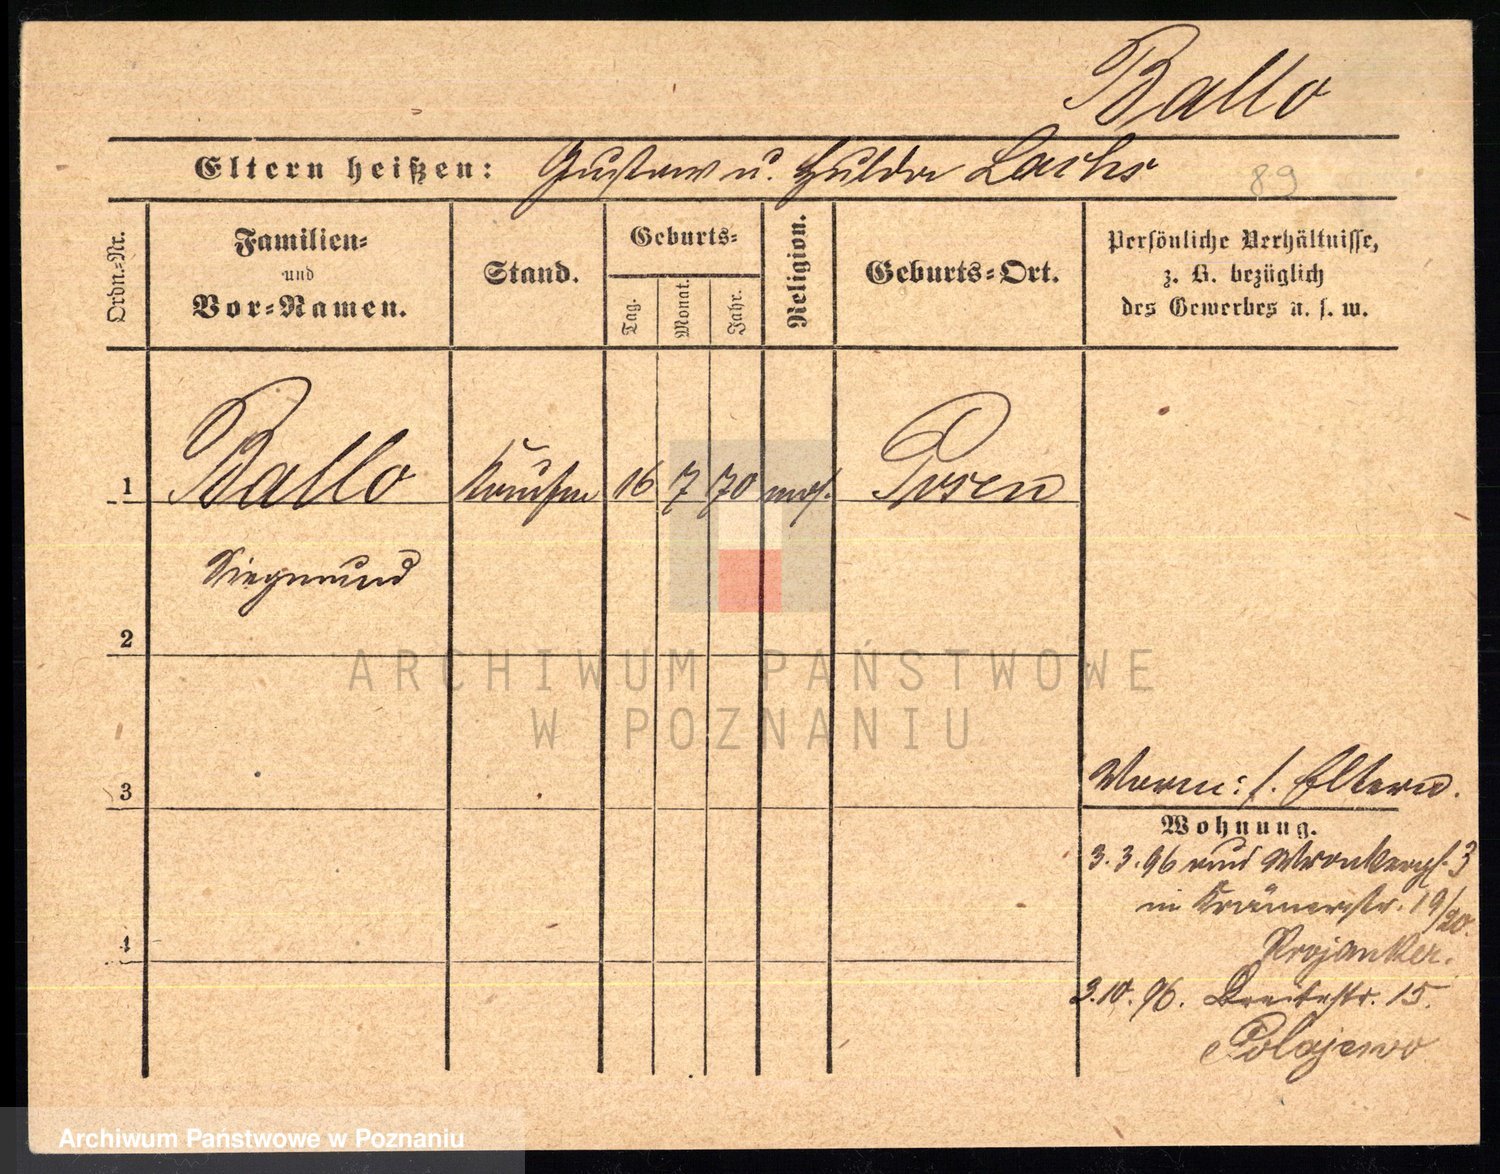 Ballo
Eltern heißen: Gustav u. Hulda Lachs
89
Ordn.-Nr.
Familien-
und
Vor-Namen.
Stand.
Geburts-
Tag.
Monat.
Jahr.
Religion.
Geburts-Ort.
Persönliche Verhältnisse,
z. B. bezüglich
des Gewerbes u. s. w.
1 Ballo Kaufm 16 7 70 mos. Posen
Siegmund
2
3
4
Vorm: s. Eltern.
Wohnung.
3.3.96 Wronkerstr. 3
in Krämerstr. 19/20.
Krojanker.
3.10.96. Breitestr. 15.
Polajewo
ARCHIWUM PAŃSTWOWE
W POZNANIU
Archiwum Państwowe w Poznaniu